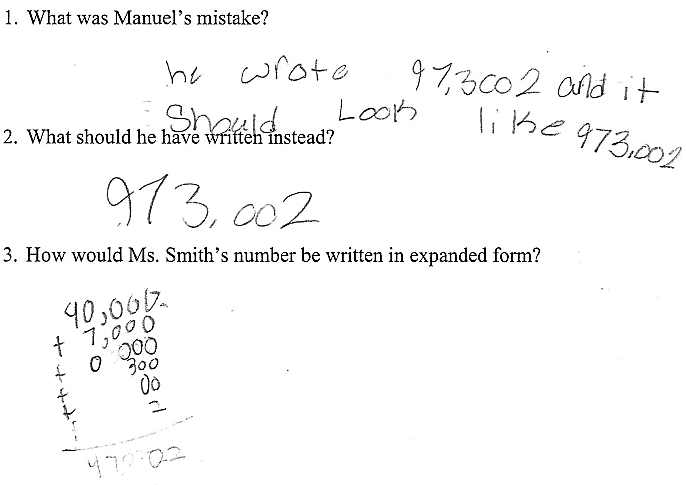 1. What was Manuel's mistake?
he wrote 97,3002 and it
Should Look like 973,002
2. What should he have written instead?
973,002
3. How would Ms. Smith's number be written in expanded form?
90,000
+ 7,000
+ 0 000
+ 300
+ 00
+ 2